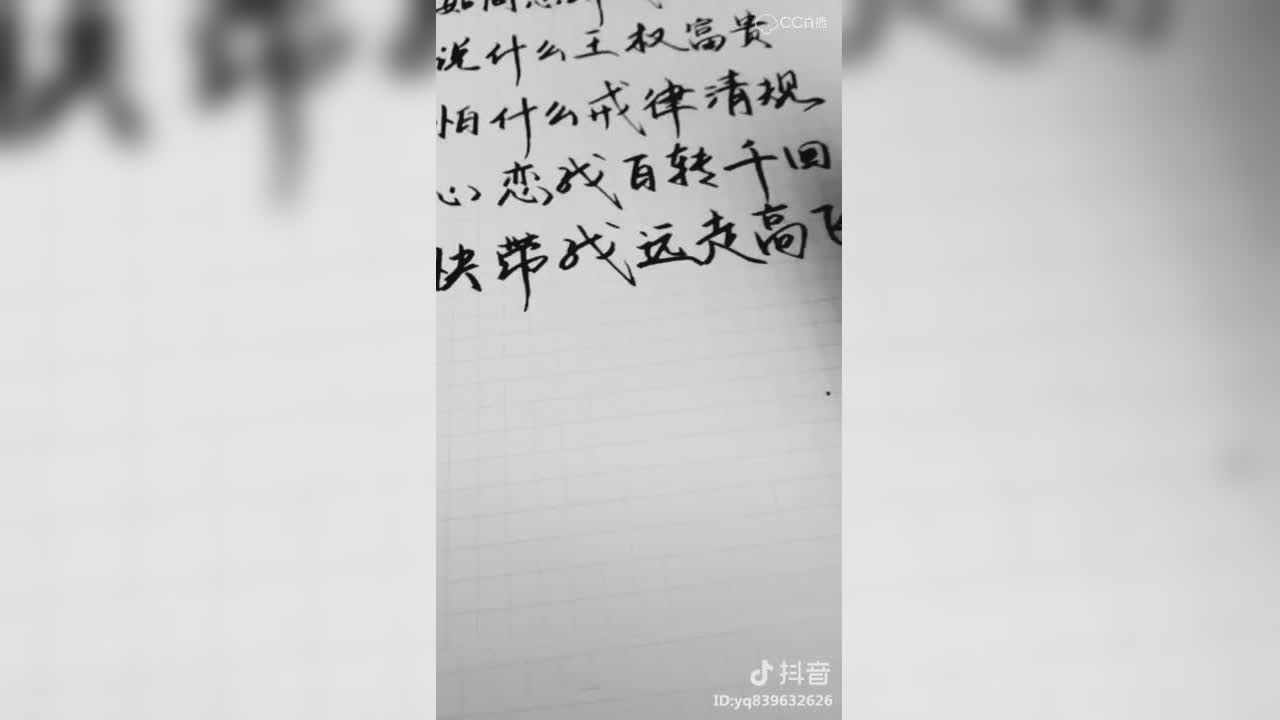 如何
CC直播
说什么王权富贵
怕什么戒律清规
心恋我百转千回
快带我远走高飞
抖音
ID:yq839632626